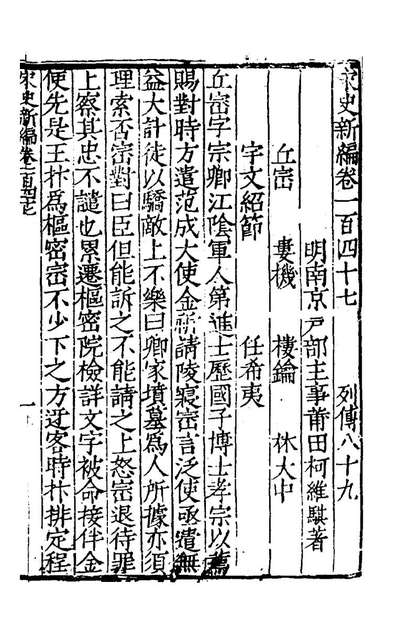 宋史新編卷一百四十七　列傳八十九
明南京戸部主事莆田柯維騏著
丘崈　婁機　樓鑰　林大中
宇文紹節　任希夷
丘崈字宗卿江陰軍人第進士歷國子博士孝宗以薦
賜對時方遣范成大使金祈請陵寢崈言泛使亟遣無
益大計徒以驕敵上不樂曰卿家墳墓爲人所據亦須
理索否崈對曰臣但能訴之不能請之上怒崈退待罪
上察其忠不譴也累遷樞密院檢詳文字被命接伴金
使先是王抃爲樞密崈不少下之方迓客時抃排定程
宋史新編卷一百四十七
一